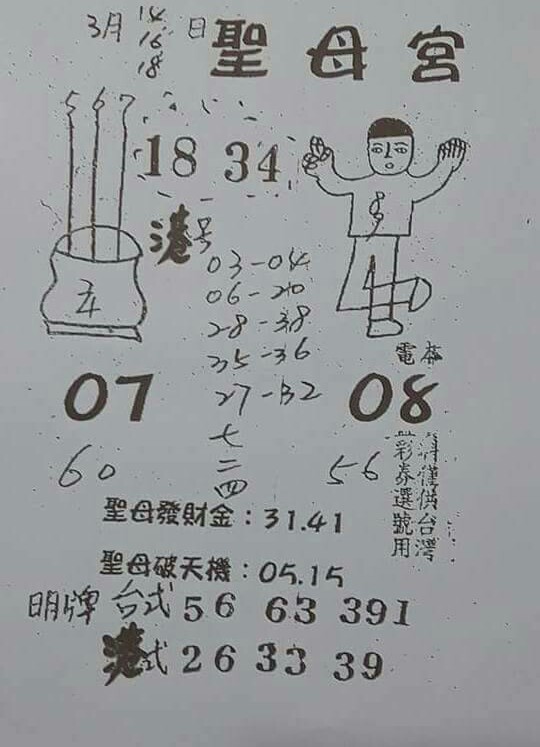 3月 14 16 18 日
聖母宮
5 6 7
18 34
港号
03-04
06-20
28-38
35-36
27-32
電
07
08
七
二
四
60
56
料僅供台灣
彩券選號用
聖母發財金：31.41
聖母破天機：05.15
明牌 台式 56 63 391
港式 26 33 39